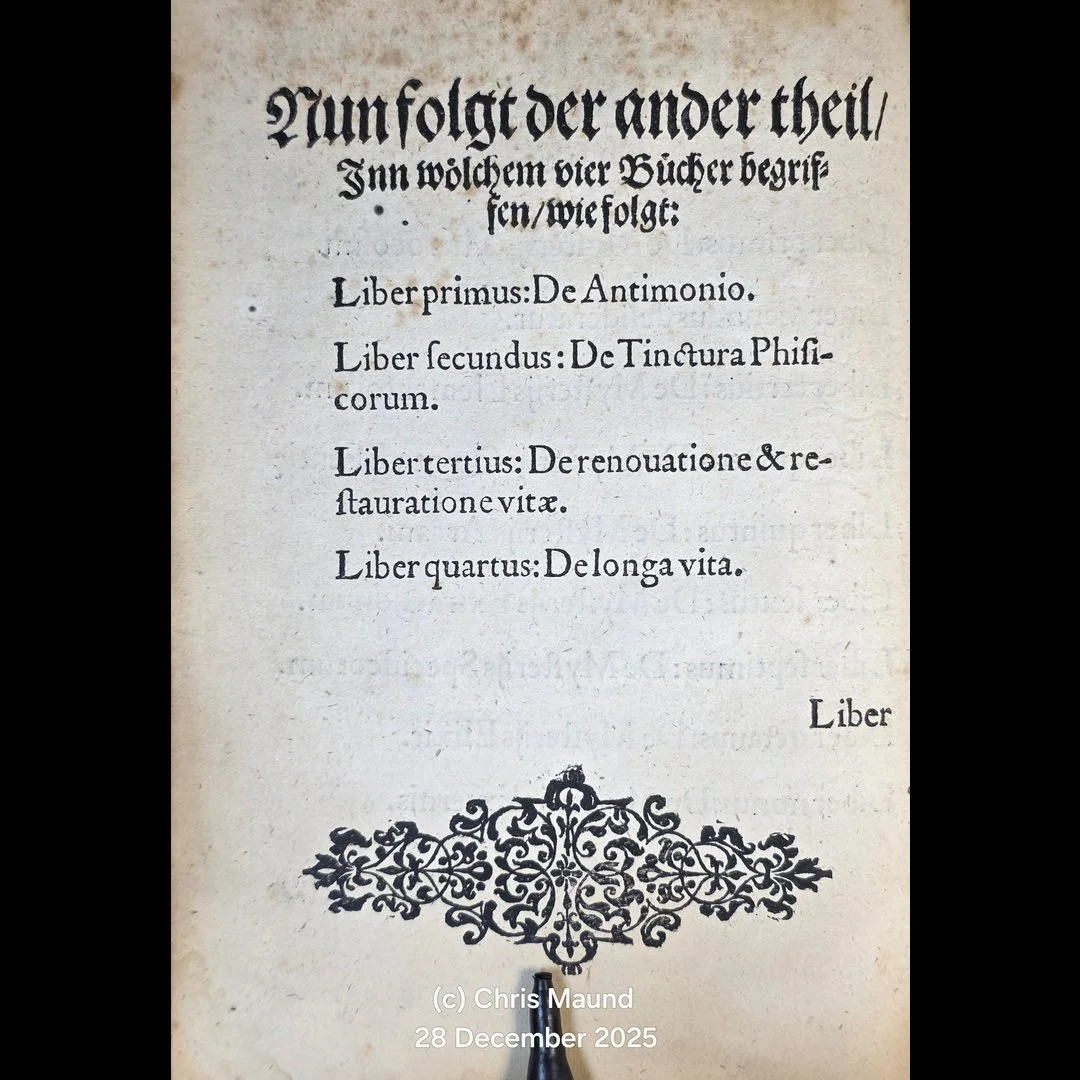 Nun folgt der ander theil/
Jnn wölchem vier Bücher begrif⸗
fen/wie folgt:
Liber primus: De Antimonio.
Liber ſecundus: De Tinctura Phiſi-
corum.
Liber tertius: De renouatione & re-
ſtauratione vitæ.
Liber quartus: De longa vita.
Liber
(c) Chris Maund
28 December 2025